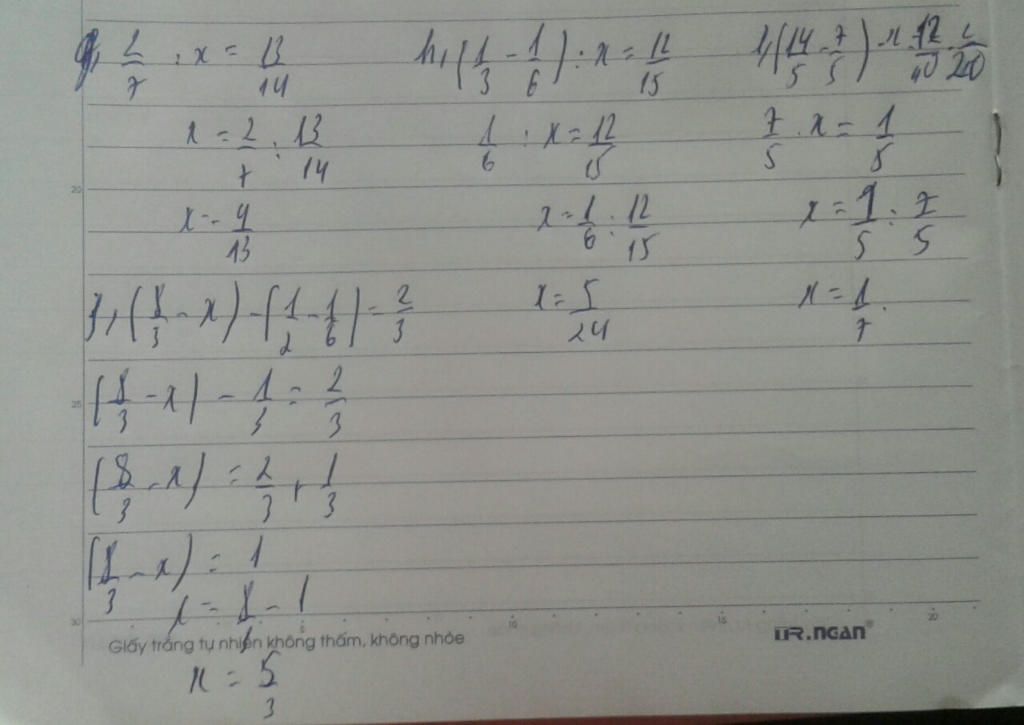 g, 2/7 : x = 13/14
x = 2/7 : 13/14
x = 4/13
h, (1/3 - 1/6) : x = 12/15
1/6 : x = 12/15
x = 1/6 : 12/15
x = 5/24
7/5 . x = 1/5
x = 1/5 : 7/5
x = 1/7.
j, (8/3 - x) - (1/2 - 1/6) = 2/3
(8/3 - x) - 1/3 = 2/3
(8/3 - x) = 2/3 + 1/3
(8/3 - x) = 1
x = 8/3 - 1
x = 5/3
20
25
30 5 10 15 20
Giấy trắng tự nhiên không thấm, không nhòe